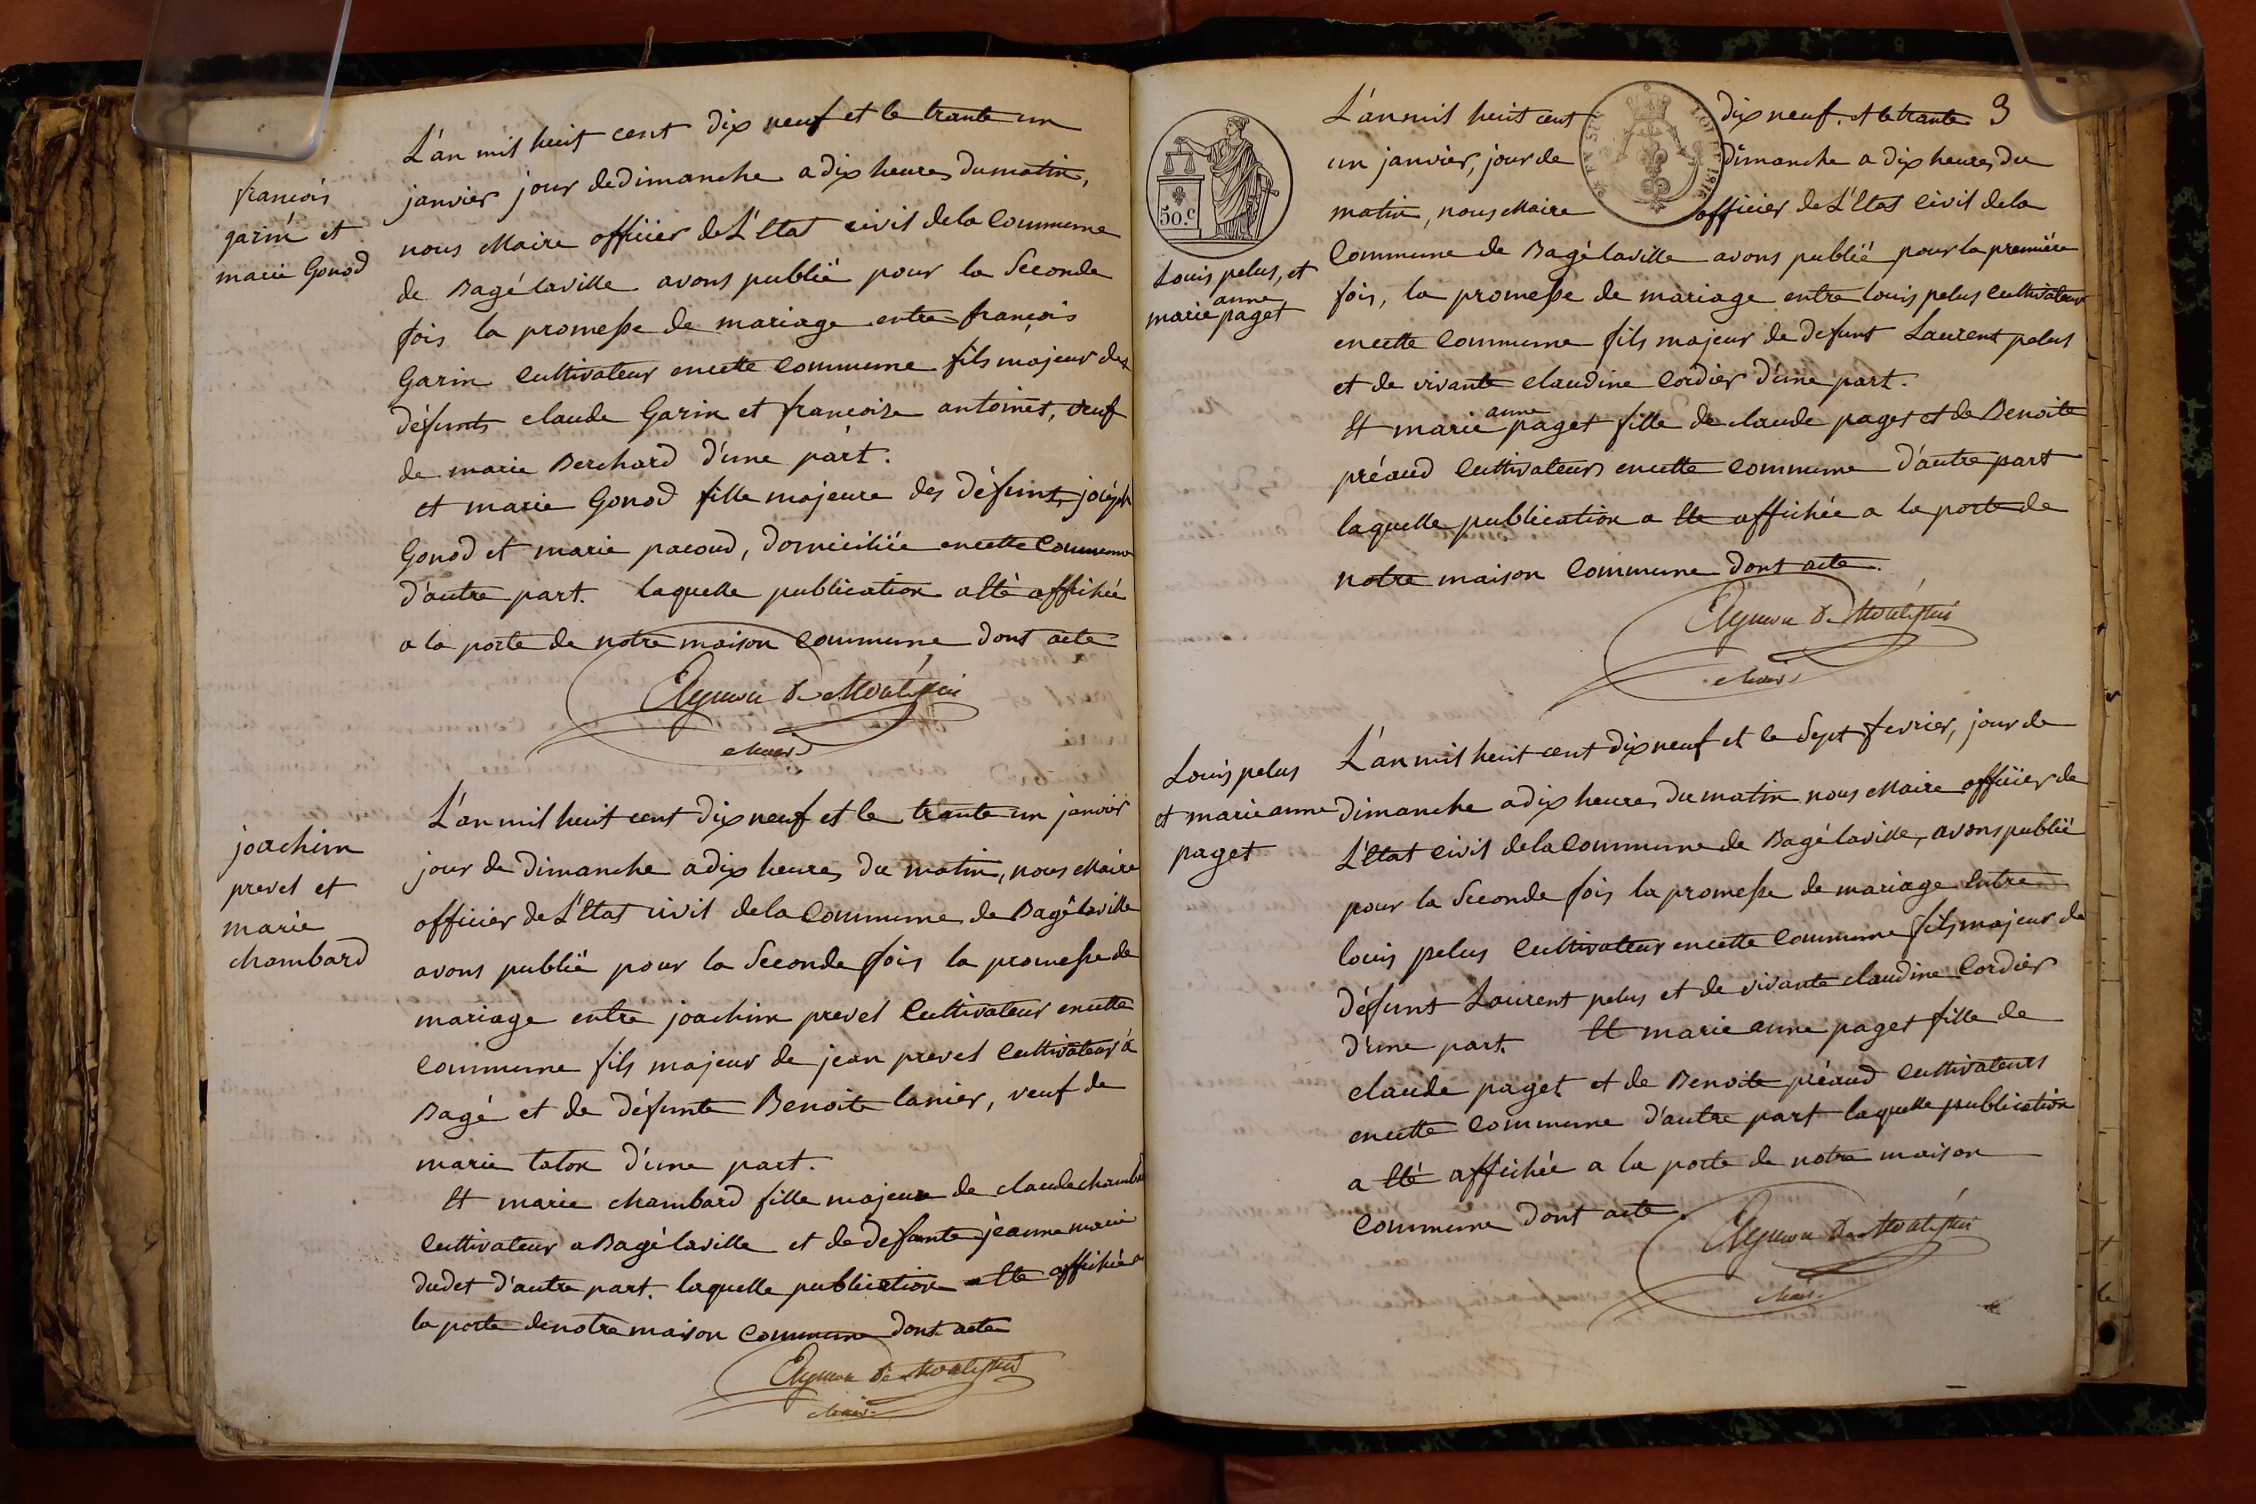 françois
garin et
marie Gonod
L'an mil huit cent dix neuf et le trante un
janvier jour de dimanche a dix heures du matin,
nous Maire officier de L'Etat civil de la Commune
de Bagé laville avons publié pour la Seconde
fois la promesse de mariage entre françois
Garin Cultivateur en cette Commune fils majeur des
défunts claude Garin et francoise antoinet, veuf
de marie Berchard d'une part.
et marie Gonod fille majeure des défunts joséph
Gonod et marie pacoud, domiciliée en cette Commune
d'autre part. laquelle publication a Eté affichée
a la porte de notre maison Commune dont acte
Maire
joachim
prevel et
marie
chambard
L'an mil huit cent dix neuf et le trante un janvier
jour de dimanche a dix heures du matin, nous Maire
officier de L'Etat civil de la Commune de Bagé laville
avons publié pour la Seconde fois la promesse de
mariage entre joachim prevel Cultivateur en cette
Commune fils majeur de jean prevel Cultivateur à
Bagé et de défunte Benoite lanier, veuf de
marie taton d'une part.
Et marie chambard fille majeure de claude chambard
Cultivateur a Bagé laville et de defunte jeanne marie
dudet d'autre part. laquelle publication a Eté affichée a
la porte de notre maison Commune dont acte
Maire
3
50.c
LOI DE 1816
Louis pelus, et
anne
marie paget
L'an mil huit cent dix neuf. et le trante
un janvier, jour de dimanche a dix heures du
matin, nous Maire officier de L'Etat Civil de la
Commune de Bagé laville avons publié pour la premiere
fois, la promesse de mariage entre louis pelus Cultivateur
en cette Commune fils majeur de defunt Laurent pelus
et de vivante claudine Cordier d'une part.
anne
Et marie paget fille de claude paget et de Benoite
préaud Cultivateurs en cette Commune d'autre part
laquelle publication a Eté affichée a la porte de
notre maison Commune dont acte.
Maire
Louis pelus
et marie anne
paget
L'an mil huit cent dix neuf et le Sept fevrier, jour de
dimanche a dix heures du matin nous Maire officier de
L'Etat Civil de la Commune de Bagé laville, avons publié
pour la Seconde fois la promesse de mariage Entre
louis pelus Cultivateur en cette Commune fils majeur de
défunt Laurent pelus et de vivante claudine Cordier
d'une part. Et marie anne paget fille de
claude paget et de Benoite préaud Cultivateurs
en cette Commune d'autre part laquelle publication
a Eté affichée a la porte de notre maison
Commune dont acte.
Maire